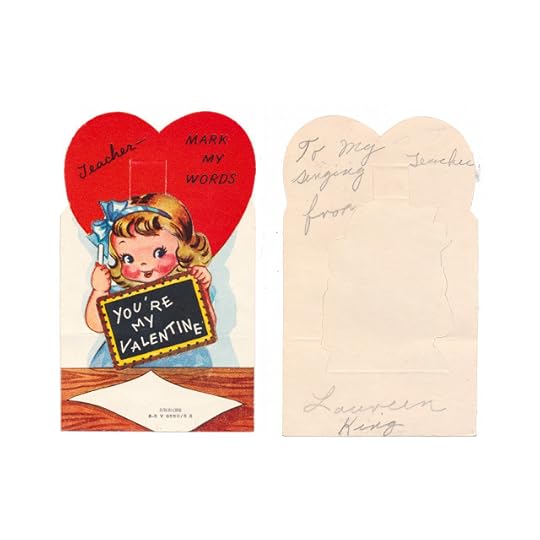 Teacher—
MARK
MY
WORDS
YOU'RE
MY
VALENTINE
To My
singing Teacher
from
Laureen
King